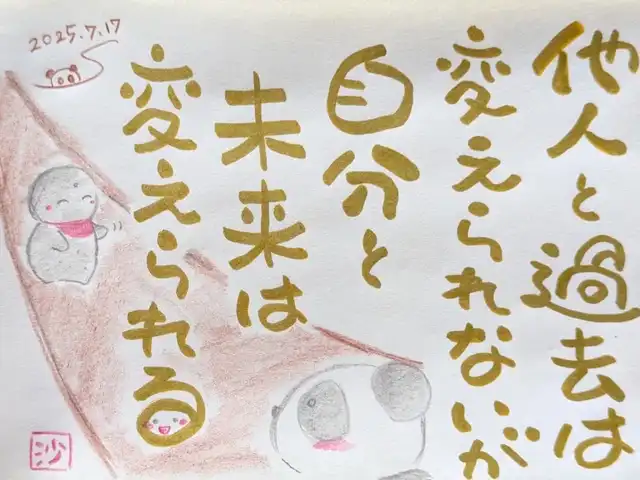 他人と過去は
変えられないが
自分と
未来は
変えられる
2025.7.17
沙